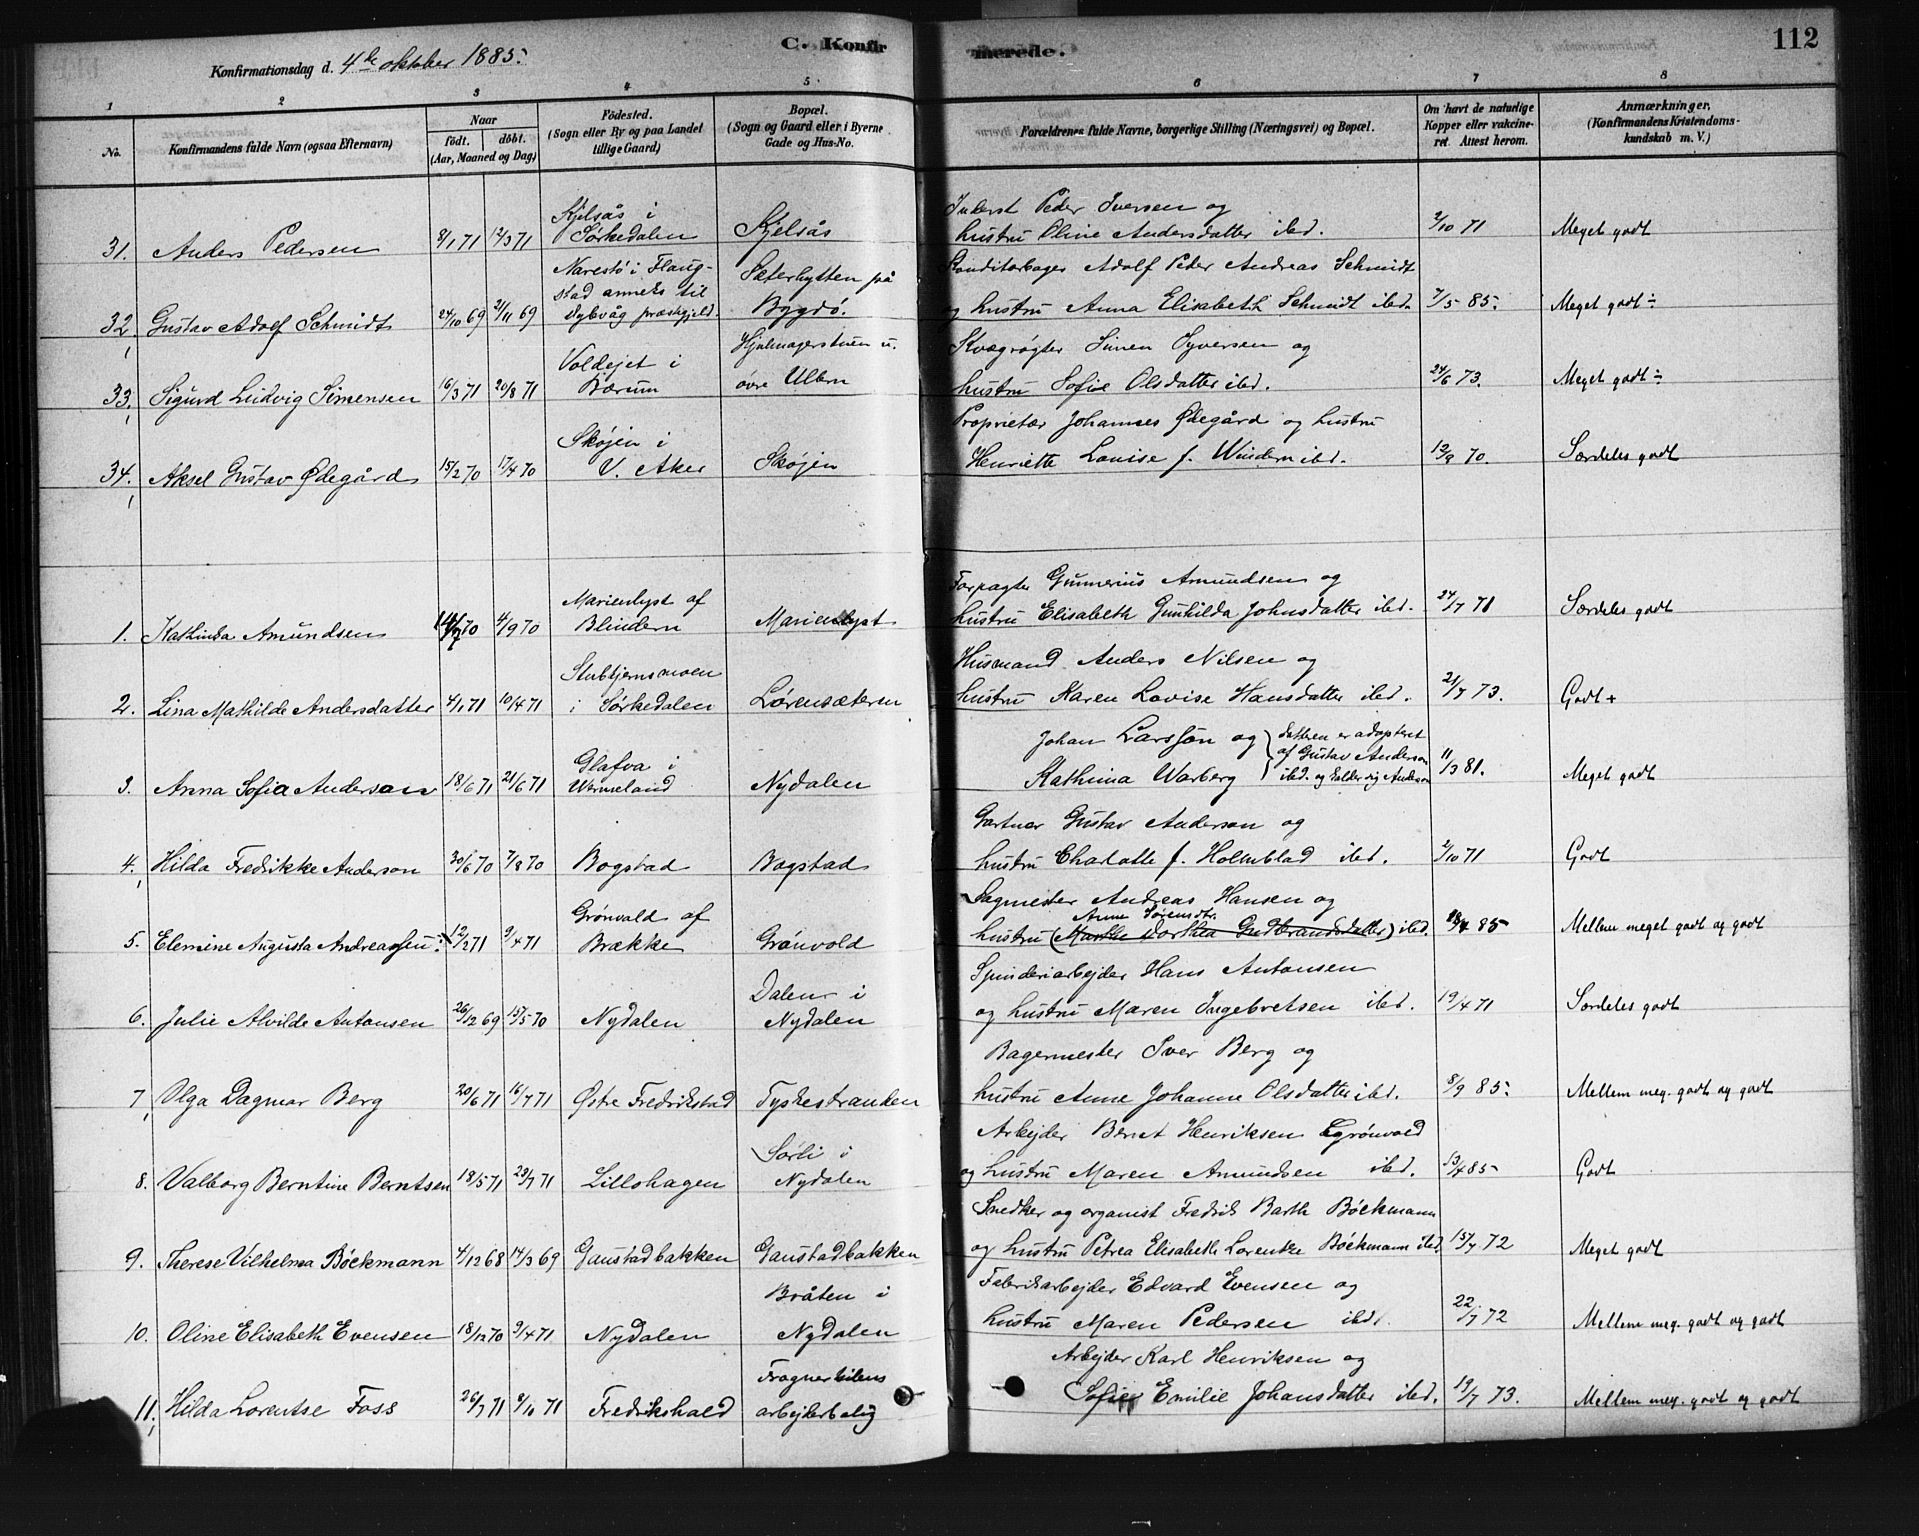 112
C. Konfirmerede.
Konfirmationsdag d. 4de oktober 1885.
1 2 3 4 5 6 7 8
No.
Konfirmandens fulde Navn (ogsaa Efternavn)
Naar
födt. döbt.
(Aar, Maaned og Dag)
Födested.
(Sogn eller By og paa Landet
tillige Gaard)
Bopæl.
(Sogn og Gaard eller i Byerne
Gade og Hus-No.
Forældrenes fulde Navne, borgerlige Stilling (Næringsvei) og Bopæl.
Om havt de naturlige
Kopper eller vakcine-
ret. Attest herom.
Anmærkninger.
(Konfirmandens Kristendoms-
kundskab m. V.)
Kjelsås i Inderst Peder Iversen og
31. Anders Pedersen 8/1 71 12/3 71 Sørkedalen Kjelsås hustru Oline Andersdatter ibd. 2/10 71 Meget godt
Narestø i Flaug- Sæterhytten på Konditorbager Adolf Peder Andreas Schmidt
stad anneks til
32. Gustav Adolf Schmidt 24/10 69 21/11 69 Dybvåg præstgjeld. Bygdø. og hustru Anna Elisabeth Schmidt ibd. 7/5 85. Meget godt ÷
Voldejet i Hjulmagerstuen u. Kvægrøgter Simen Syversen og
33. Sigurd Ludvig Simensen 16/3 71 20/8 71 Bærum øvre Ullern hustru Sofie Olsdatter ibd. 24/6 73. Meget godt ÷
Skøjen i Proprietær Johannes Ødegård og hustru
34. Aksel Gustav Ødegård 15/2 70 17/4 70 V. Aker Skøjen Henriette Louise f. Windern ibd. 13/9 70. Særdeles godt
Marienlyst af Forpagter Gunnerius Amundsen og
1. Kathinka Amundsen 14/7 70 4/9 70 Blindern Marienlyst hustru Elisabeth Gunhilda Johnsdatter ibd. 24/7 71 Særdeles godt
Stubtjernsmoen Husmand Anders Nilsen og
2. Lina Mathilde Andersdatter 4/1 71 10/4 71 i Sørkedalen Lørensæteren hustru Karen Lovise Hansdatter ibd. 21/7 73. Godt +
Glafva i Johan Larsson og datteren er adopteret
af Gustav Anderson
3. Anna Sofia Anderson 18/6 71 21/6 71 Wermeland Nydalen Kathrina Warberg ibd. og Anderson 11/3 81. Meget godt
Gartner Gustav Anderson og
4. Hilda Fredrikke Anderson 30/6 70 7/8 70 Bogstad Bogstad hustru Charlotte f. Holmblad ibd. 2/10 71 Godt
Grønvold af Sagmester Andreas Hansen og
Anne Sørensdtr.
5. Elemine Augusta Andreassen 12/2 71 9/4 71 Brække Grønvold hustru (Marthe Dorthea Gudbrandsdatter) ibd. 13/4 85 Mellem meget godt og godt
Dalen i Spinderiarbejder Hans Antonsen
6. Julie Alvilde Antonsen 26/12 69 15/5 70 Nydalen Nydalen og hustru Maren Ingebretsen ibd. 19/4 71 Særdeles godt
Bagermester Iver Berg og
7. Olga Dagmar Berg 20/6 71 16/7 71 Østre Fredrikstad Tyskestranden hustru Anne Johanne Olsdatter ibd. 8/9 85. Mellem meg. godt og godt
Sørli i Arbejder Bernt Henriksen Grønvold
8. Valborg Berntine Berntsen 18/5 71 23/7 71 Lillohagen Nydalen og hustru Maren Amundsen ibd. 13/4 85 Godt
Snedker og organist Fredrik Barth Bøckmann
9. Therese Vilhelma Bøckmann 4/12 68 14/3 69 Gaustadbakken Gaustadbakken og hustru Petrea Elisabeth Lorentze Bøckmann ibd. 15/7 72 Meget godt
Bråten i Fabrikarbejder Edvard Evensen og
10. Oline Elisabeth Evensen 18/12 70 9/4 71 Nydalen Nydalen hustru Maren Pedersen ibd. 22/7 72 Mellem meg. godt og godt
Frognerkilens Arbejder Karl Henriksen og
11. Hilda Lorentse Foss 26/7 71 8/10 71 Fredrikshald arbejderbolig Sofie Emilie Johansdatter ibd. 19/7 73. Mellem meg. godt og godt